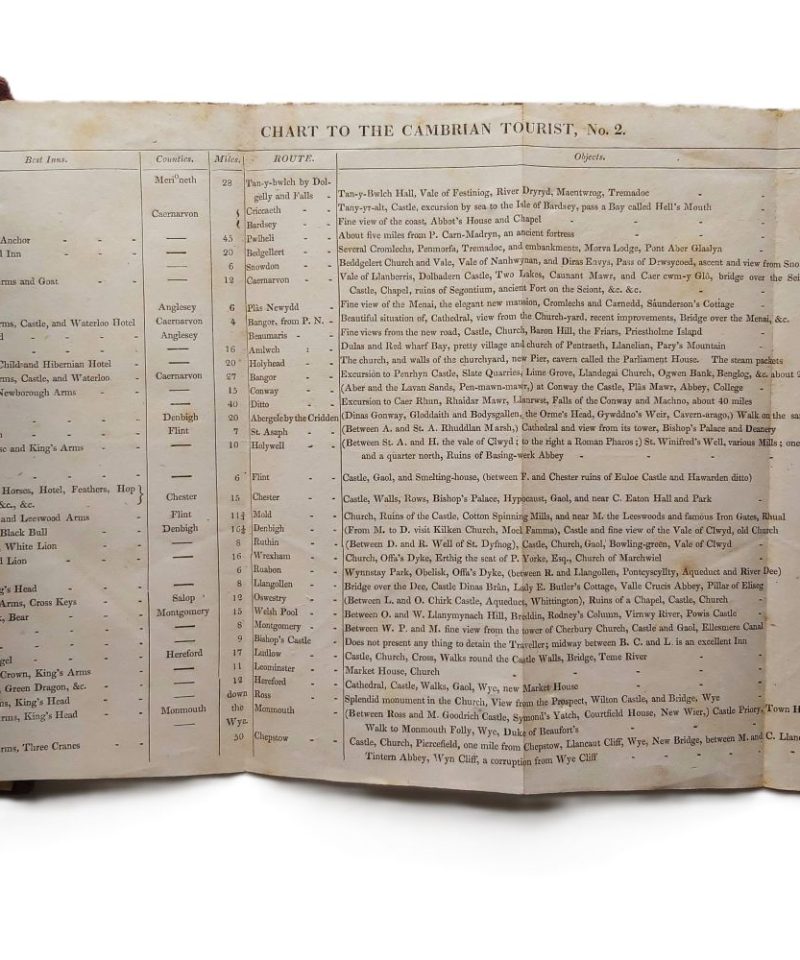 CHART TO THE CAMBRIAN TOURIST, No. 2.
Best Inns. Counties. Miles. ROUTE. Objects.
Meri^oneth 28 Tan-y-bwlch by Dol-
gelly and Falls - Tan-y-Bwlch Hall, Vale of Festiniog, River Dryryd, Maentwrog, Tremadoc
Caernarvon Criccaeth - - Tany-yr-alt, Castle, excursion by sea to the Isle of Bardsey, pass a Bay called Hell's Mouth
Bardsey - - Fine view of the coast, Abbot's House and Chapel
Anchor - - - — 45 Pwlheli - - About five miles from P. Carn-Madryn, an ancient fortress
d Inn - - - — 20 Bedgellert - - Several Cromlechs, Penmorfa, Tremadoc, and embankments, Morva Lodge, Pont Aber Glaslyn
— 6 Snowdon - - Beddgelert Church and Vale, Vale of Nanhwynan, and Diras Emys, Pass of Drwsycoed, ascent and view from Snow
rms and Goat - - — 12 Caernarvon - Vale of Llanberris, Dolbadern Castle, Two Lakes, Caunant Mawr, and Caer cwm-y Glô, bridge over the Sei
Castle, Chapel, ruins of Segontium, ancient Fort on the Sciont, &c. &c.
Anglesey 6 Plâs Newydd - Fine view of the Menai, the elegant new mansion, Cromlechs and Carnedd, Saunderson's Cottage
rms, Castle, and Waterloo Hotel Caernarvon 4 Bangor, from P. N. - Beautiful situation of, Cathedral, view from the Church-yard, recent improvements, Bridge over the Menai, &c.
Anglesey Beaumaris - - Fine views from the new road, Castle, Church, Baron Hill, the Friars, Priestholme Island
— 16 Amlwch - Dulas and Red wharf Bay, pretty village and church of Pentraeth, Llanelian, Pary's Mountain
Child and Hibernian Hotel — 20 Holyhead - - The church, and walls of the churchyard, new Pier, cavern called the Parliament House. The steam packets
rms, Castle, and Waterloo - Caernarvon 27 Bangor - - Excursion to Penrhyn Castle, Slate Quarries, Lime Grove, Llandegai Church, Ogwen Bank, Benglog, &c. about 2
Newborough Arms - - — 15 Conway - - (Aber and the Lavan Sands, Pen-mawn-mawr,) at Conway the Castle, Plâs Mawr, Abbey, College
— 40 Ditto - - Excursion to Caer Rhun, Rhaidar Mawr, Llanrwst, Falls of the Conway and Machno, about 40 miles
Denbigh 20 Abergele by the Cridden (Dinas Gonway, Gloddaith and Bodysgallen, the Orme's Head, Gywddno's Weir, Cavern-arago,) Walk on the sa
Flint 7 St. Asaph - - (Between A. and St. A. Rhuddlan Marsh,) Cathedral and view from its tower, Bishop's Palace and Deanery
sc and King's Arms - - — 10 Holywell - - (Between St. A. and H. the vale of Clwyd; to the right a Roman Pharos;) St. Winifred's Well, various Mills; one
and a quarter north, Ruins of Basing-werk Abbey
— 6 Flint - - Castle, Gaol, and Smelting-house, (between F. and Chester ruins of Euloe Castle and Hawarden ditto)
Horses, Hotel, Feathers, Hop
&c., &c. Chester 15 Chester - - Castle, Walls, Rows, Bishop's Palace, Hypocaust, Gaol, and near C. Eaton Hall and Park
and Leeswood Arms - Flint 11¼ Mold - - Church, Ruins of the Castle, Cotton Spinning Mills, and near M. the Leeswoods and famous Iron Gates, Rhual
Black Bull - - Denbigh 16½ Denbigh - - (From M. to D. visit Kilken Church, Moel Famma), Castle and fine view of the Vale of Clwyd, old Church
White Lion - - — 8 Ruthin - - (Between D. and R. Well of St. Dyfnog), Castle, Church, Gaol, Bowling-green, Vale of Clwyd
d Lion - - — 16 Wrexham - - Church, Offa's Dyke, Erthig the seat of P. Yorke, Esq., Church of Marchwiel
— 6 Ruabon - - Wynnstay Park, Obelisk, Offa's Dyke, (between R. and Llangollen, Pontcyscyllty, Aqueduct and River Dee)
g's Head - - — 8 Llangollen - Bridge over the Dee, Castle Dinas Brân, Lady E. Butler's Cottage, Valle Crucis Abbey, Pillar of Eliseg
Arms, Cross Keys - - Salop 12 Oswestry - - (Between L. and O. Chirk Castle, Aqueduct, Whittington), Ruins of a Chapel, Castle, Church
Bear - - Montgomery 15 Welsh Pool - - Between O. and W. Llanymynach Hill, Breddin, Rodney's Column, Virnwy River, Powis Castle
— 8 Montgomery - - Between W. P. and M. fine view from the tower of Cherbury Church, Castle and Gaol, Ellesmere Canal
— 9 Bishop's Castle Does not present any thing to detain the Traveller; midway between B. C. and L. is an excellent Inn
gel - - Hereford 17 Ludlow - - Castle, Church, Cross, Walks round the Castle Walls, Bridge, Teme River
Crown, King's Arms - - — 11 Leominster - Market House, Church
Green Dragon, &c. - - — 12 Hereford - - Cathedral, Castle, Walks, Gaol, Wye, new Market House
ns, King's Head - - — down Ross - - Splendid monument in the Church, View from the Prospect, Wilton Castle, and Bridge, Wye
rms, King's Head - - Monmouth the Monmouth - (Between Ross and M. Goodrich Castle, Symond's Yatch, Courtfield House, New Wier,) Castle Priory, Town H
— Wye. Walk to Monmouth Folly, Wye, Duke of Beaufort's
rms, Three Cranes - - — 30 Chepstow - - Castle, Church, Piercefield, one mile from Chepstow, Llancaut Cliff, Wye, New Bridge, between M. and C. Llan
Tintern Abbey, Wyn Cliff, a corruption from Wye Cliff